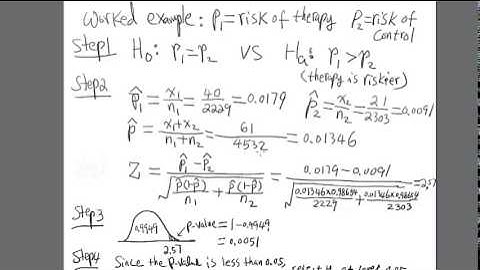 Worked example: P₁=risk of therapy P₂=risk of control
Step1 H₀: P₁=P₂ VS Hₐ: P₁>P₂
(therapy is riskier)
Step2
p̂₁ = x₁/n₁ = 40/2229 = 0.0179 p̂₂ = x₂/n₂ = 21/2303 = 0.0091
p̂ = (x₁+x₂)/(n₁+n₂) = 61/4532 = 0.01346
Z = (p̂₁-p̂₂)/√(p̂(1-p̂)/n₁ + p̂(1-p̂)/n₂) = (0.0179-0.0091)/√(0.01346×0.98654/2229 + 0.01346×0.98654/2303) = 2.57
Step3 0.9949 2.57 p-value = 1-0.9949
= 0.0051
Step4
Since the p-value is less than 0.05,